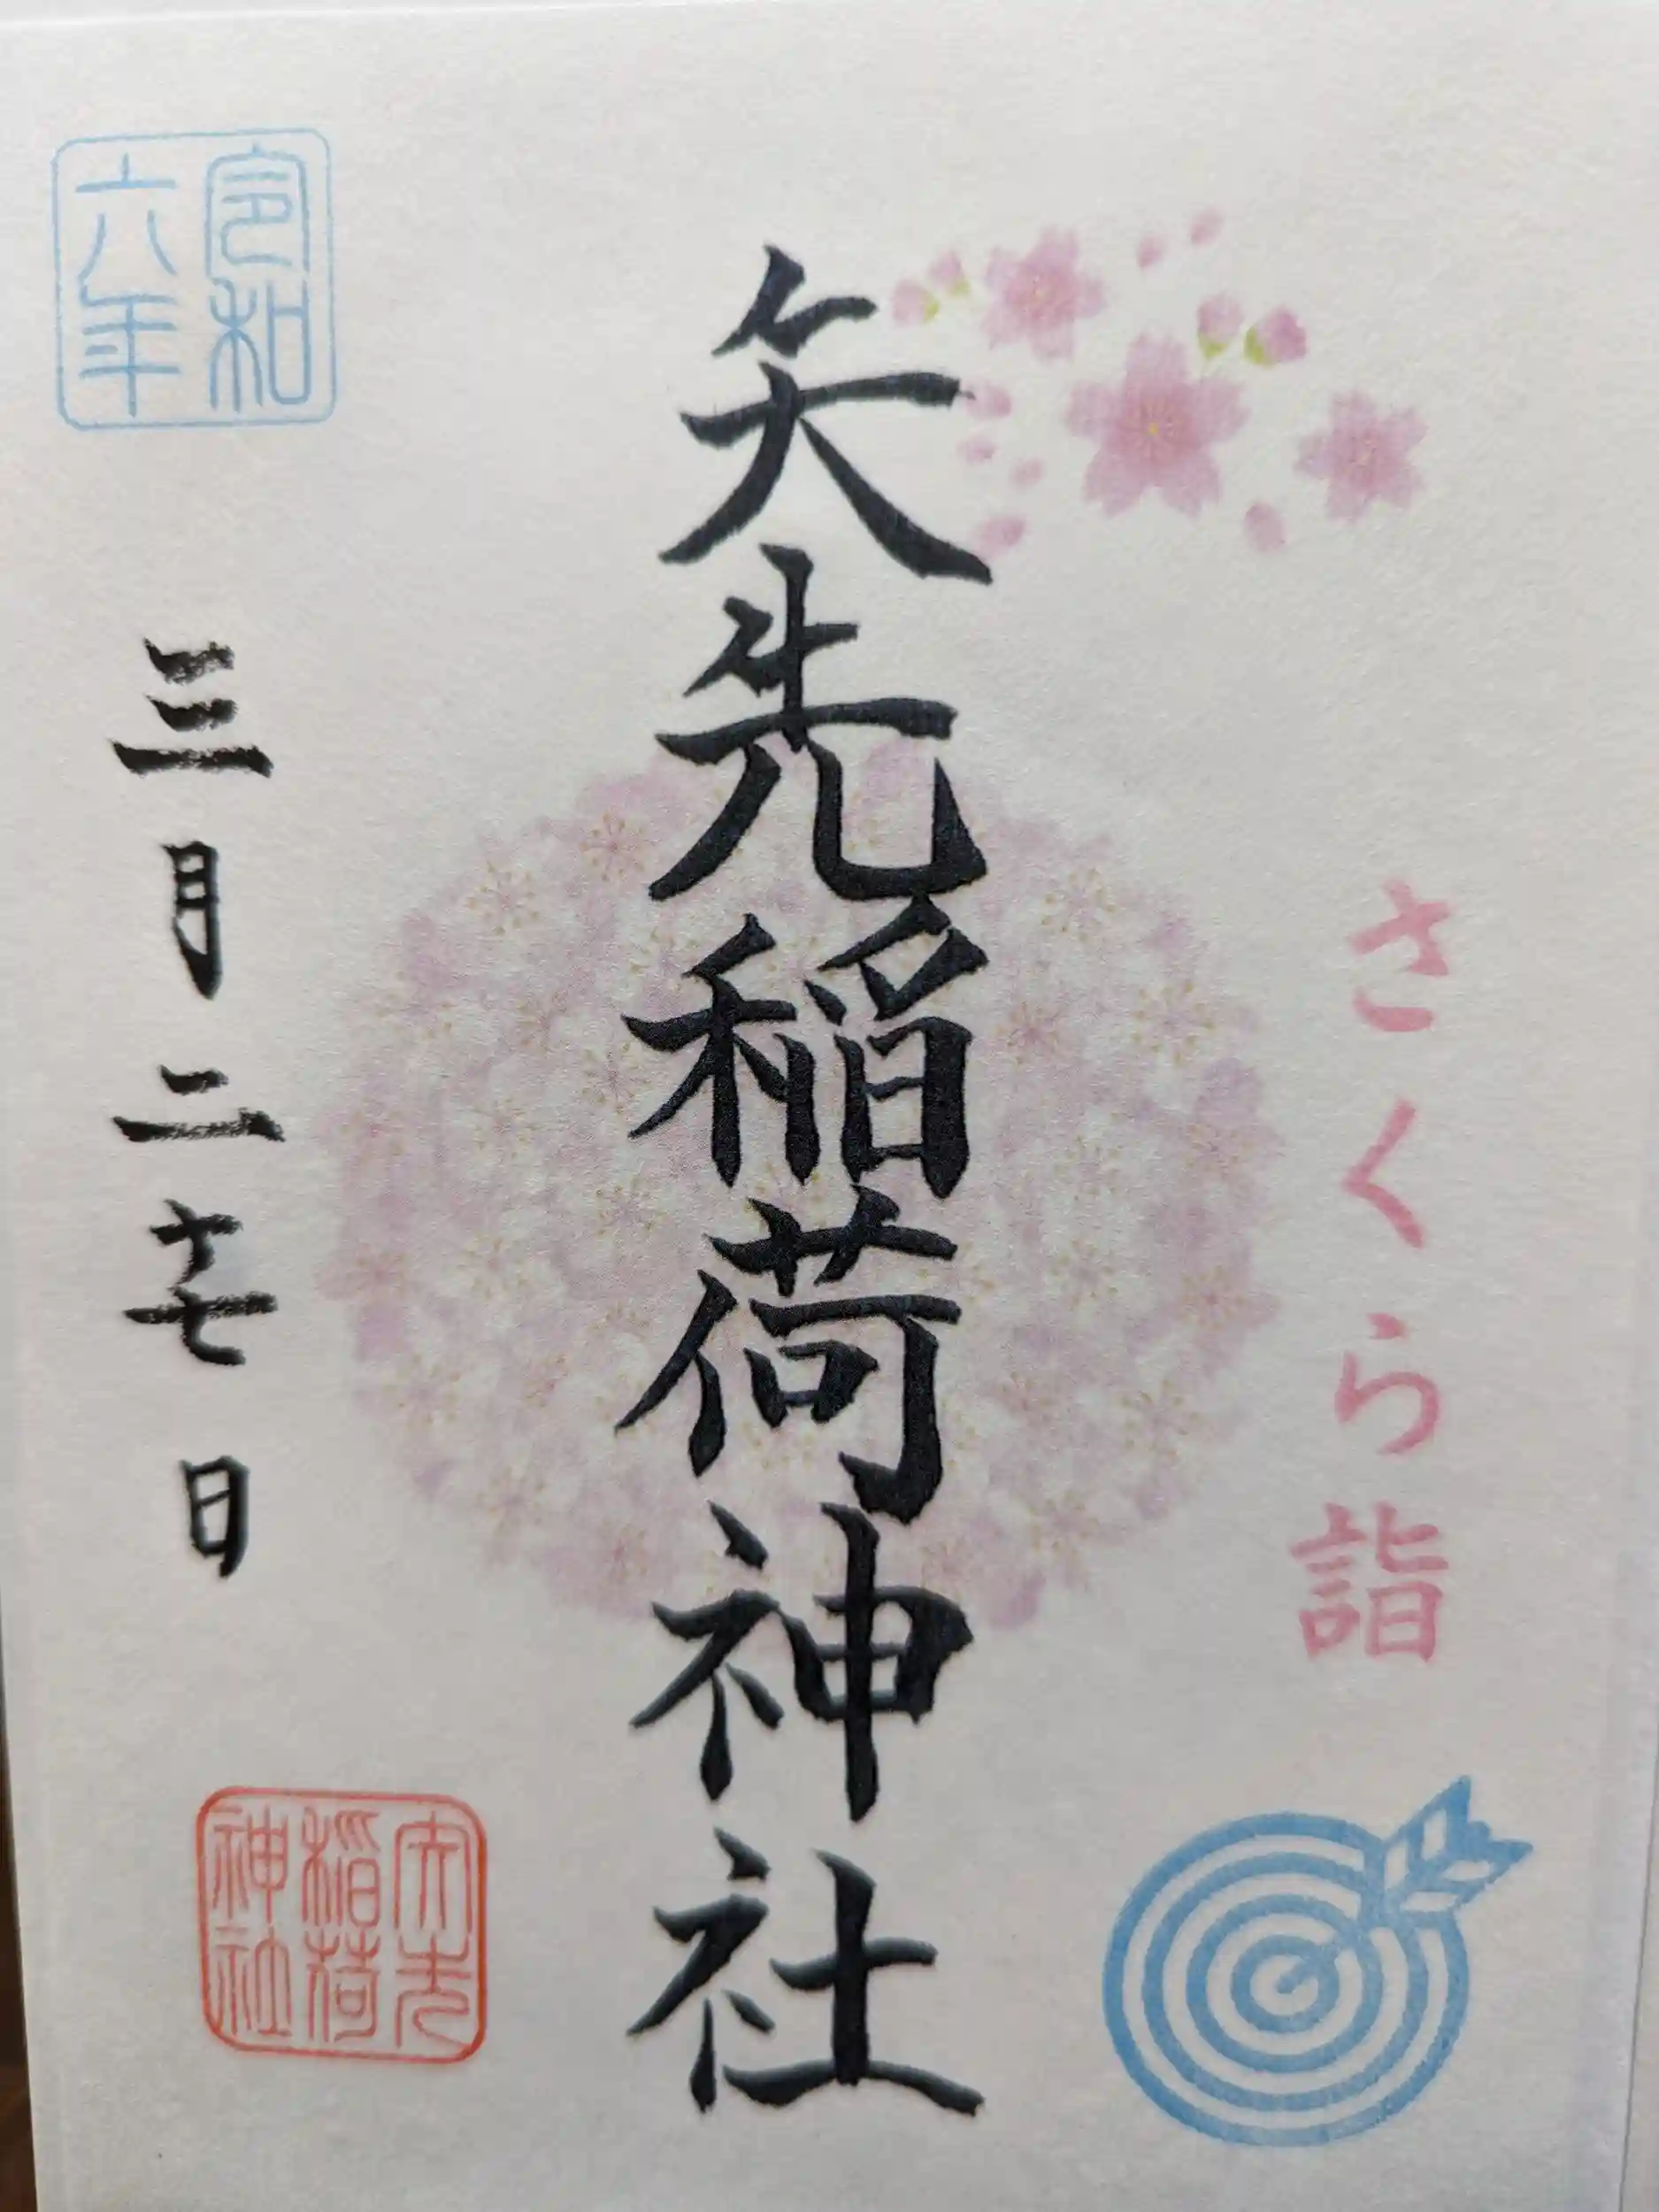 さくら詣
矢先稲荷神社
令和
六年
三月二十七日
矢先
稲荷
神社